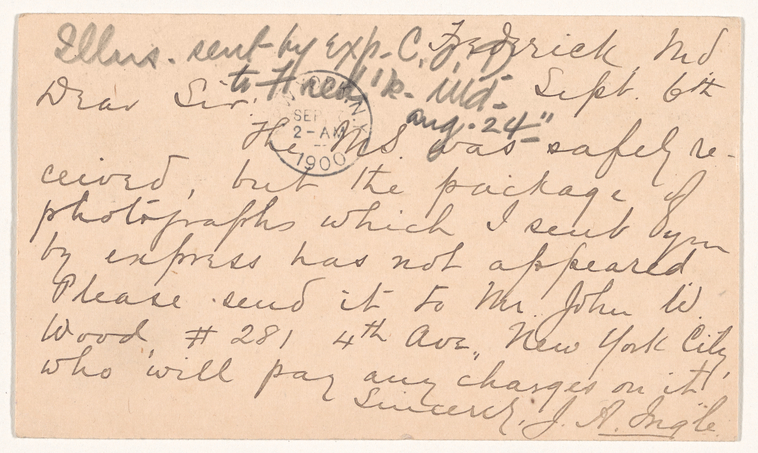 Illus. sent by exp. C.
to Fred'k. Md.
Aug. 24"
Frederick, Md
Sept. 6th
SEP
2-AM
1900
Dear Sir:
The MS. was safely re-
ceived, but the package of
photographs which I sent you
by express has not appeared
Please send it to Mr. John W.
Wood, # 281 4th Ave, New York City,
who will pay any charges on it.
Sincerely, J. A. Ingle.